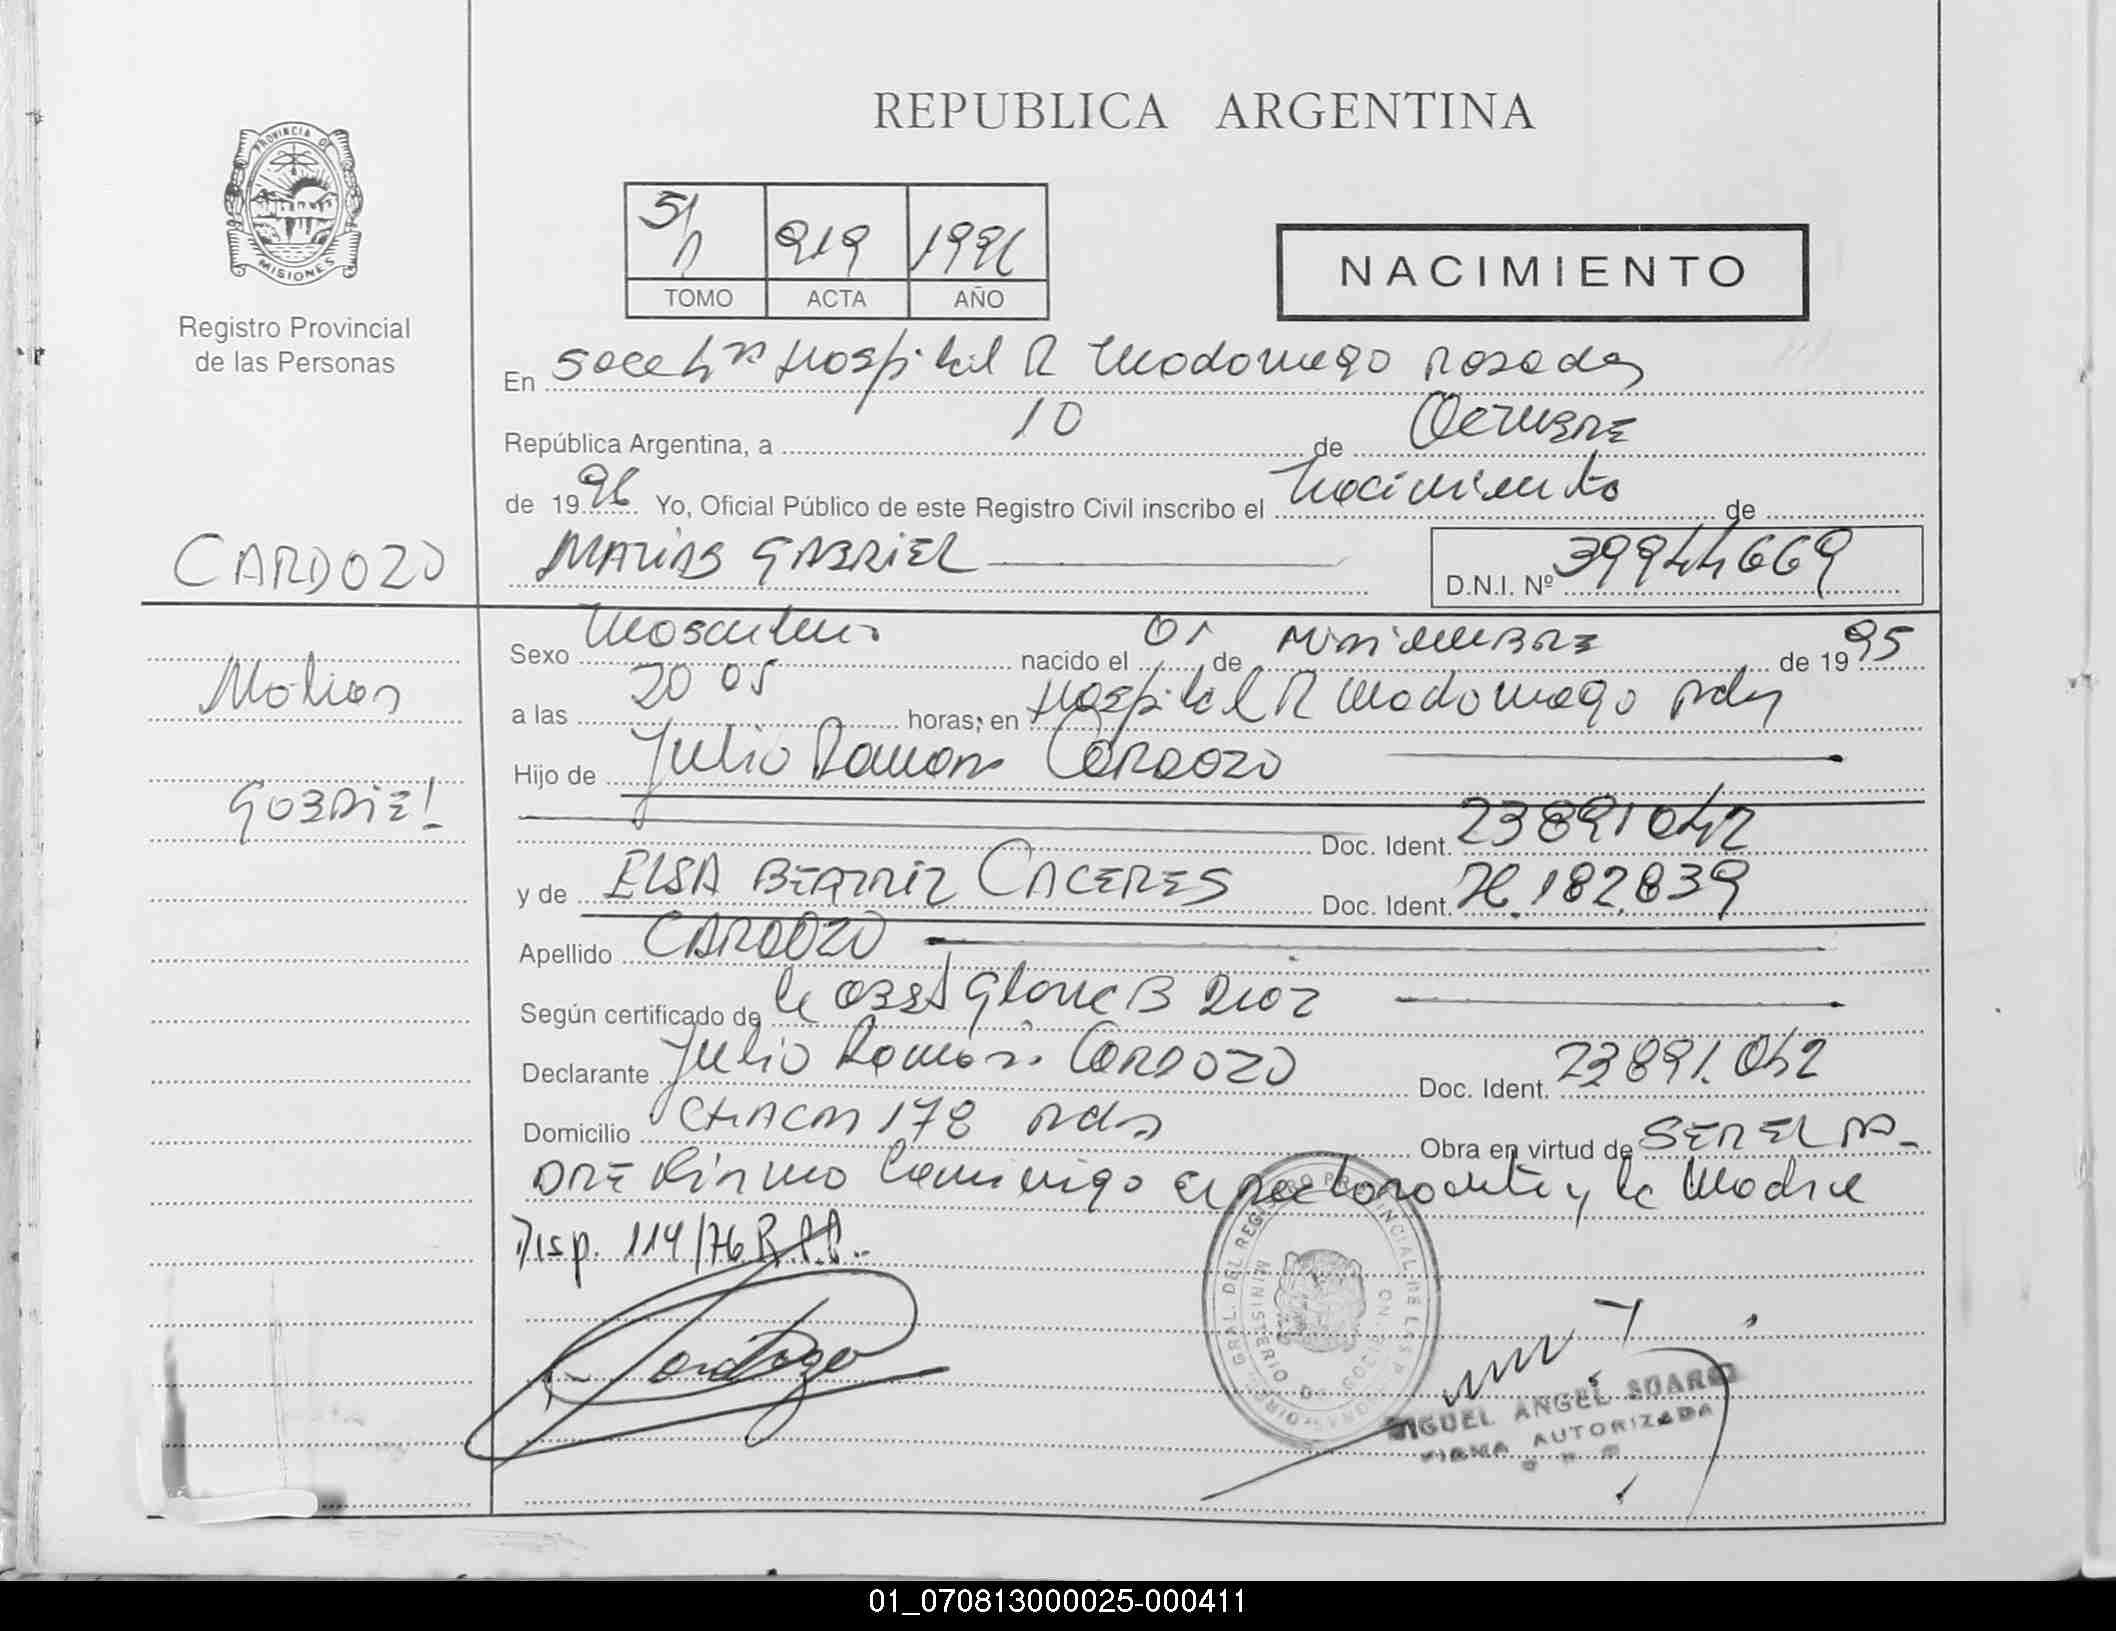 REPUBLICA ARGENTINA
PROVINCIA DE MISIONES
Registro Provincial
de las Personas
5/n 919 1996
TOMO ACTA AÑO
NACIMIENTO
En Hospital R Madariaga Posadas
República Argentina, a 10 de OCTUBRE
de 1996 Yo, Oficial Público de este Registro Civil inscribo el Nacimiento de
CARDOZO
MATIAS GABRIEL
D.N.I. Nº 39944669
Matias
Gabriel
Sexo Masculino nacido el 01 de de 1995
a las 20 05 horas, en Hospital R Madariaga Pdas
Hijo de Julio Ramon CARDOZO
Doc. Ident. 23891042
y de ELSA BEATRIZ CACERES Doc. Ident. 182.839
Apellido CARDOZO
Según certificado de la OBST B
Declarante Julio Ramon CARDOZO Doc. Ident. 23891.042
Domicilio CHACRA 178 Pdas Obra en virtud de SER EL PA-
DRE firmo conmigo el declarante y la Madre
Disp. 114/76 R.P.P.
Cardozo
MIGUEL ANGEL SUAREZ
FIRMA AUTORIZADA
01_070813000025-000411